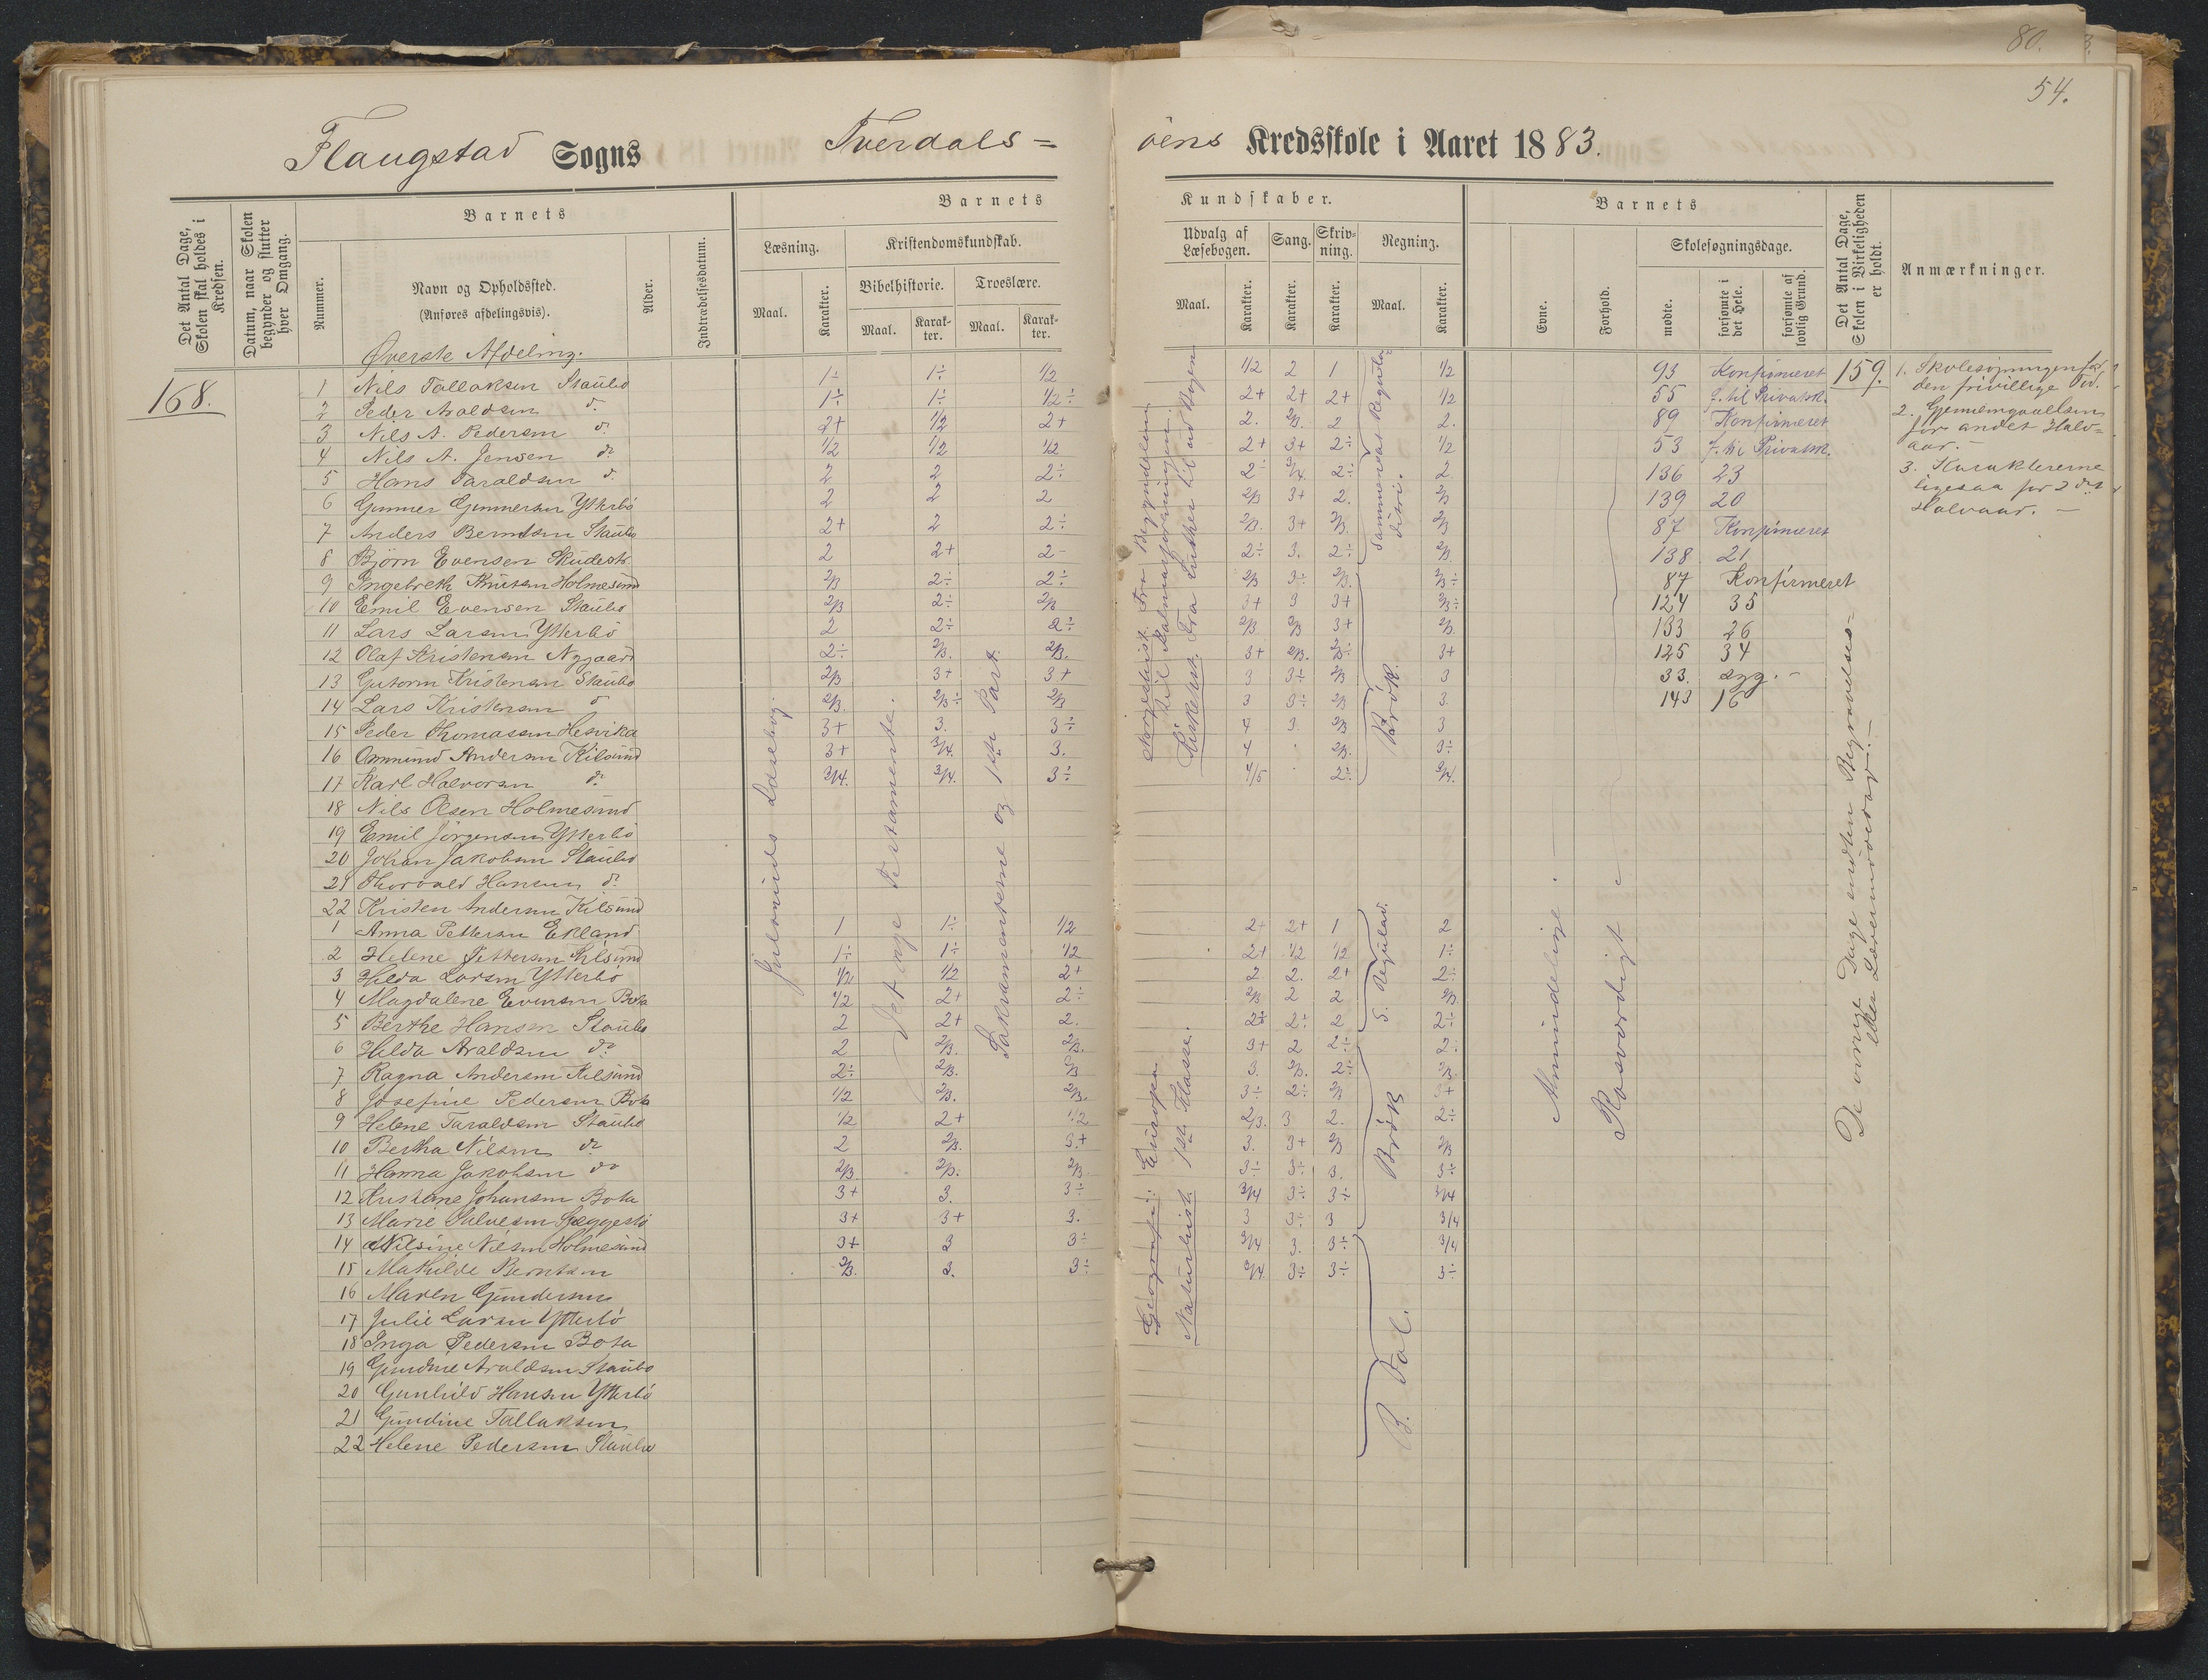 80.
54.
Flaugstad Sogns Tverdals=
öens Kredsskole i Aaret 1883.
Det Antal Dage, Skolen skal holdes i Kredsen.
Datum, naar Skolen begynder og slutter hver Omgang.
Barnets
Nummer.
Navn og Opholdssted.
(Anføres afdelingsvis).
Alder.
Indtrædelsesdatum.
Barnets
Læsning.
Maal.
Karakter.
Kristendomskundskab.
Bibelhistorie.
Maal.
Karakter.
Troeslære.
Maal.
Karakter.
Kundskaber.
Udvalg af Læsebogen.
Maal.
Karakter.
Sang.
Karakter.
Skrivning.
Karakter.
Regning.
Maal.
Karakter.
Barnets
Evne.
Forhold.
Skolesøgningsdage.
mødte.
forsømte i det Hele.
forsømte af lovlig Grund.
Det Antal Dage, Skolen i Virkeligheden er holdt.
Anmærkninger.
Øverste Afdeling.
168.
1 Nils Tallaksen Staubo 1÷ 1÷ 1/2 1/2 2 1 1/2 93 Konfirmeret 159.
2 Peder Araldsen do 1÷ 1÷ 1/2÷ 2+ 2+ 2+ 1/2 55 f. til Privatsk.
3 Nils A. Pedersen do 2+ 1/2 2+ 2. 2/3. 2 2. 89 Konfirmeret
4 Nils A. Jensen do 1/2 1/2 1/2 2+ 3+ 2÷ 1/2 53 f. til Privatsk.
5 Hans Taraldsen do 2 2 2÷ 2÷ 3/4. 2÷ 2 136 23
6 Gunner Gunnersen Ytterbö 2 2 2 2/3 3+ 2. 2/3 139 20
7 Anders Berntsen Staubo 2+ 2 2÷ 2/3. 3+ 2/3. 2/3 87 Konfirmeret
8 Björn Evensen Skudestr. 2 2+ 2- 2÷ 3. 2÷ 2/3 138 21
9 Ingebreth Knutsen Holmesund 2/3 2÷ 2÷ 2/3 3÷ 2/3. 2/3÷ 87 Konfirmeret
10 Emil Evensen Staubo 2/3 2÷ 2/3 3+ 3 3+ 2/3÷ 124 35
11 Lars Larsen Ytterbö 2 2÷ 2÷ 2/3 2/3 3+ 2/3. 133 26
12 Olaf Kristensen Nygaard 2÷ 2/3. 2/3. 3+ 2/3. 2/3÷ 3+ 125 34
13 Gutorm Kristensen Staubo 2/3 3+ 3+ 3 3+ 2/3 3 33. syg. -
14 Lars Kristensen do 2/3. 2/3÷ 2/3 3 3÷ 2/3 3. 143 16
15 Peder Thomassen Hesvika 3+ 3. 3÷ 4 3. 2/3 3
16 Ommund Andersen Kilsund 3+ 3/4. 3. 4 2/3. 3÷
17 Karl Halvorsen do 3/4. 3/4. 3÷ 4/5 2÷ 3/4.
18 Nils Olsen Holmesund
19 Emil Jörgensen Ytterbö
20 Johan Jakobsen Staubo
21 Thorvald Hansen do
22 Kristen Andersen Kilsund
1 Anna Pettersen Ekland 1 1÷ 1/2 2+ 2+ 1 2
2 Helene Pettersen Kilsund 1÷ 1÷ 1/2 2+ 1/2 1/2 1÷
3 Hilda Larsen Ytterbö 1/2 1/2 2+ 2 2. 2+ 2÷
4 Magdalene Evensen Bota 1/2 2+ 2÷ 2/3 2 2 2/3
5 Berthe Hansen Staubo 2 2+ 2. 2÷ 2÷ 2 2÷
6 Hilda Araldsen do 2 2/3. 2/3. 3+ 2 2÷ 2÷
7 Ragna Andersen Kilsund 2÷ 2/3. 2/3 3. 2/3. 2÷ 2/3
8 Josefine Pedersen Bota 1/2 2/3. 2/3. 3÷ 2÷ 2/3 3+
9 Helene Taraldsen Staubo 1/2 2+ 1/2 2/3. 3 2. 2÷
10 Bertha Nilsen do 2 2/3. 3+ 3. 3+ 2/3 2/3
11 Hanna Jakobsen do 2/3 2/3. 2/3 3÷ 3÷ 3. 3÷
12 Kristine Johansen Bota 3+ 3. 3÷ 3/4 3÷ 3÷ 3/4
13 Marie Salvesen 3+ 3+ 3. 3 3÷ 3 3/4
14 Nilsine Nilsen Holmesund 3+ 3 3÷ 3/4 3. 3÷ 3/4
15 Mathilde Berntsen 2/3. 3. 3÷ 3/4 3÷ 3÷ 3÷
16 Maren Gundersen
17 Julie Larsen Ytterbö
18 Inga Pedersen Bota
19 Gundine Araldsen Staubo
20 Gunhild Hansen Ytterbö
21 Gundine Tallaksen
22 Helene Pedersen Staubo
Læsebog
Det nye Testamente.
Sakramenterne og 1ste Part.
Fra Begyndelsen
til Kalmarforeningen.
Fra Luther til ud Bogen
Geografi: Europa.
Naturhist. 1ste Klasse.
Sammensat Regula
detri.
Brök.
S. Regulad.
Brök
B. Tal.
Almindelige. -
Rosværdigt -
De övrige Dage endten Begravelses=
eller Lærermödedag. -
1. Skolesögningen for
den frivillige Tid.
2. Gjennemgaaelsen
for andet Halv=
aar. -
3. Karaktererne
ligesaa for 2det
Halvaar. -